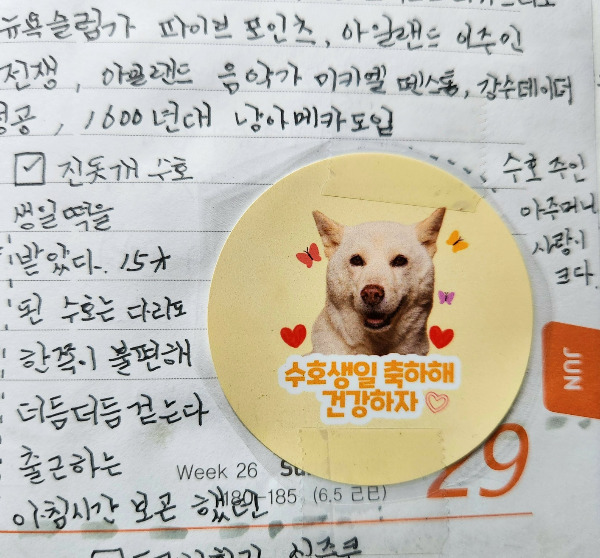 뉴욕슬럼가 파이브 포인츠, 아일랜드 이주민
전쟁, 아일랜드 음악가 미키엘 땐스톰, 강수데이터
1600년대 남아메카도일
☑ 진돗개 수호
생일떡을
받았다. 15才
된 수호는 다리도
한쪽이 불편해
더듬더듬 걷는다
출근하는
아침시간 보곤 했던
수호 주인
아주머니
사랑이
크다.
수호생일 축하해
건강하자
JUN
Week 26
29
180-185 (6.5 근민)